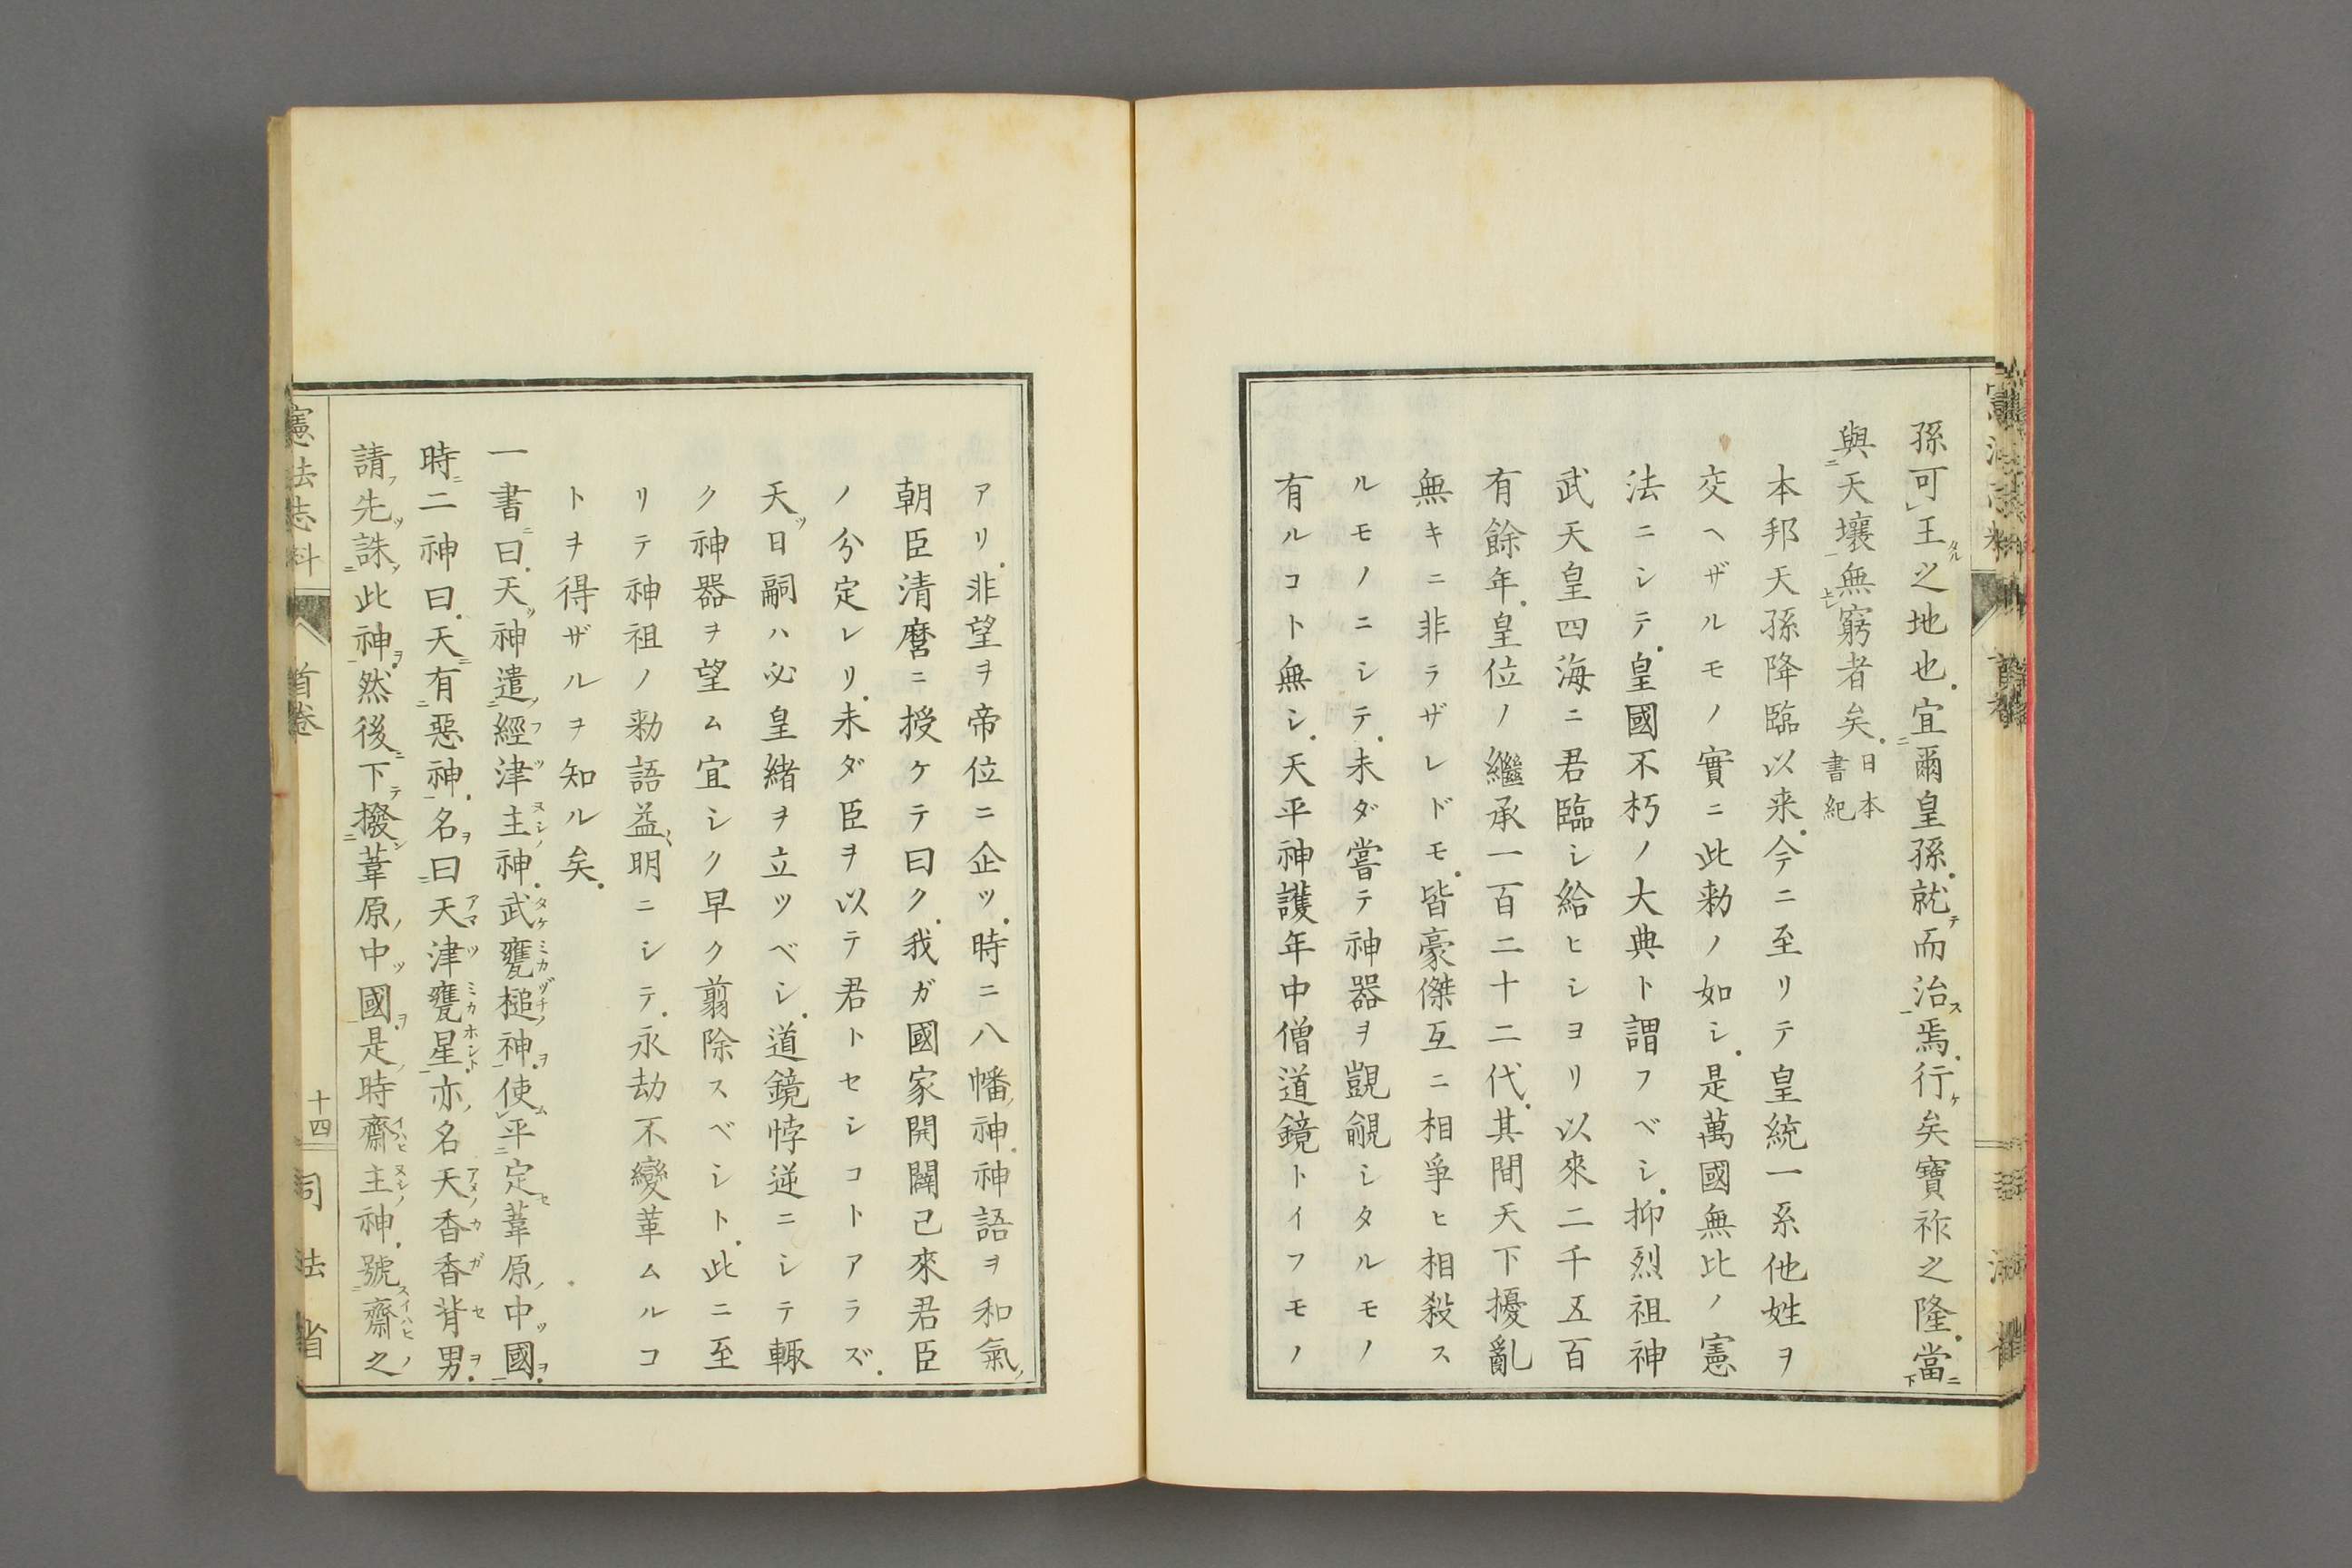 孫可王之地也。宜爾皇孫。就而治焉。行矣寶祚之隆。當
與天壤無窮者矣。日本書紀
本邦天孫降臨以来。今ニ至リテ皇統一系他姓ヲ
交ヘザルモノ實ニ此勅ノ如シ。是萬國無比ノ憲
法ニシテ。皇國不朽ノ大典ト謂フベシ。抑烈祖神
武天皇四海ニ君臨シ給ヒシヨリ以來二千五百
有餘年。皇位ノ繼承一百二十二代。其間天下擾亂
無キニ非ラザレドモ。皆豪傑互ニ相爭ヒ相殺ス
ルモノニシテ。未ダ嘗テ神器ヲ覬覦シタルモノ
有ルコト無シ。天平神護年中僧道鏡トイフモノ
アリ。非望ヲ帝位ニ企ツ。時ニ八幡神。神語ヲ和氣
朝臣清麿ニ授ケテ曰ク。我ガ國家開闢己來君臣
ノ分定レリ。未ダ臣ヲ以テ君トセシコトアラズ。
天ツ日嗣ハ必皇緒ヲ立ツベシ。道鏡悖逆ニシテ輙
ク神器ヲ望ム宜シク早ク翦除スベシト。此ニ至
リテ神祖ノ勅語益〻明ニシテ。永劫不變革ムルコ
トヲ得ザルヲ知ル矣。
一書曰。天神遣經津主神。武甕槌神。使平定葦原中國。
時二神曰。天有惡神。名曰天津甕星。亦名天香香背男。
請先誅此神。然後下撥葦原中國。是時齋主神。號齋之
憲法志料
首卷
十四
司法省